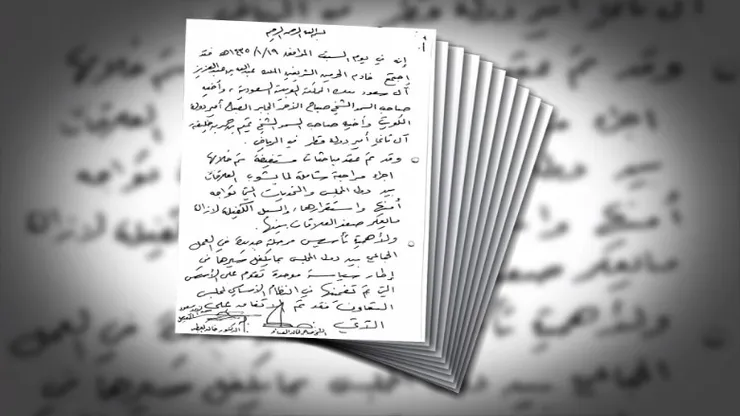 بسم الله الرحمن الرحيم
إنه في يوم السبت الموافق ١٤٣٥/١/١٩هـ فقد
اجتمع خادم الحرمين الشريفين الملك عبدالله بن عبدالعزيز
آل سعود ملك المملكة العربية السعودية، وأخيه
صاحب السمو الشيخ صباح الأحمد الجابر الصباح أمير دولة
الكويت وأخيه صاحب السمو الشيخ تميم بن حمد بن خليفة
آل ثاني أمير دولة قطر في الرياض.
وقد تم عقد مباحثات مستفيضة تم خلالها
اجراء مراجعة شاملة لما يشوب العلاقات
بين دول المجلس والتحديات التي تواجه
أمنها واستقرارها، والسبل الكفيلة لإزالة
ما يعكر صفو العلاقات بينها.
ولأهمية تأسيس مرحلة جديدة في العمل
الجماعي بين دول المجلس بما يكفل سيرها في
إطار سياسة موحدة تقوم على الأسس
التي تم تضمينها في النظام الأساسي لمجلس
التعاون فقد تم الاتفاق على